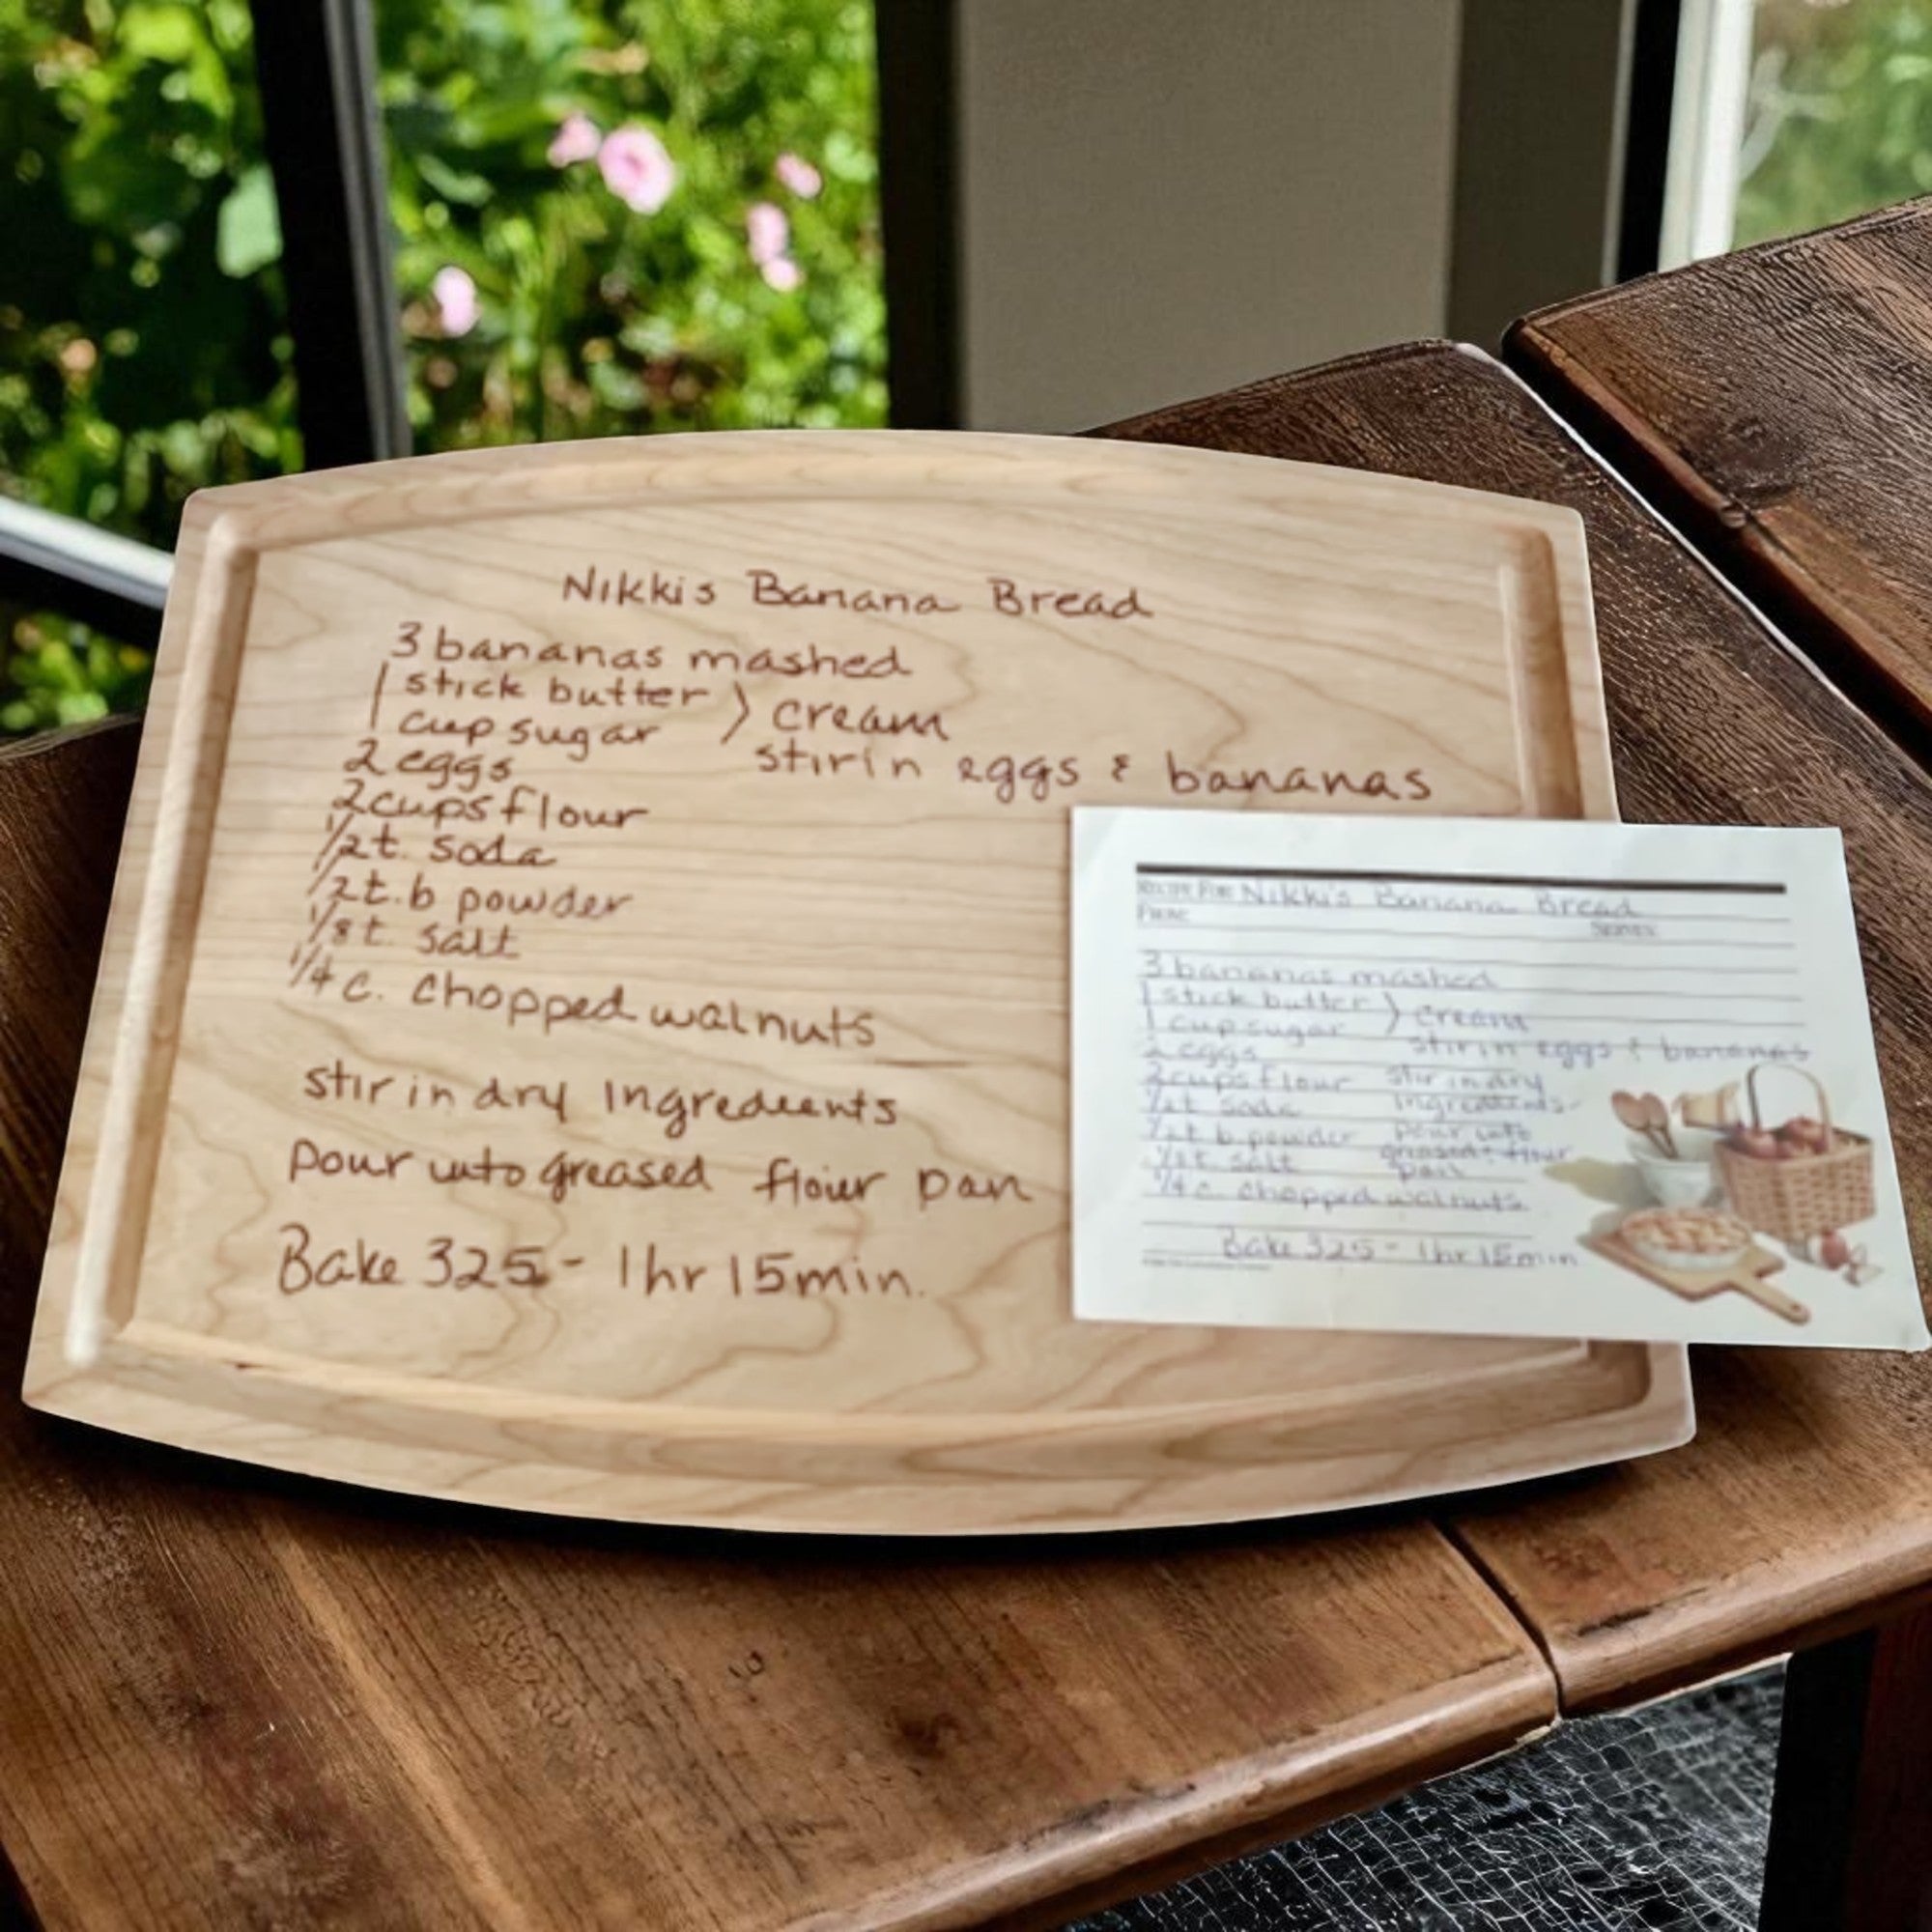 Nikkis Banana Bread
3 bananas mashed
1 stick butter } cream
1 cup sugar
2 eggs stir in eggs & bananas
2 cups flour
1/2 t. soda
1/2 t. b powder
1/8 t. salt
1/4 c. chopped walnuts
stir in dry Ingredients
pour into greased flour pan
Bake 325 - 1hr 15min.
RECIPE FOR Nikki's Banana Bread
FROM
SERVES
3 bananas mashed
1 stick butter } cream
1 cup sugar
2 eggs stir in eggs & bananas
2 cups flour stir in dry
1/2 t soda Ingredients
1/2 t b powder pour into
1/8 t. salt greased & flour
pan
1/4 c. chopped walnuts
Bake 325 - 1hr 15min